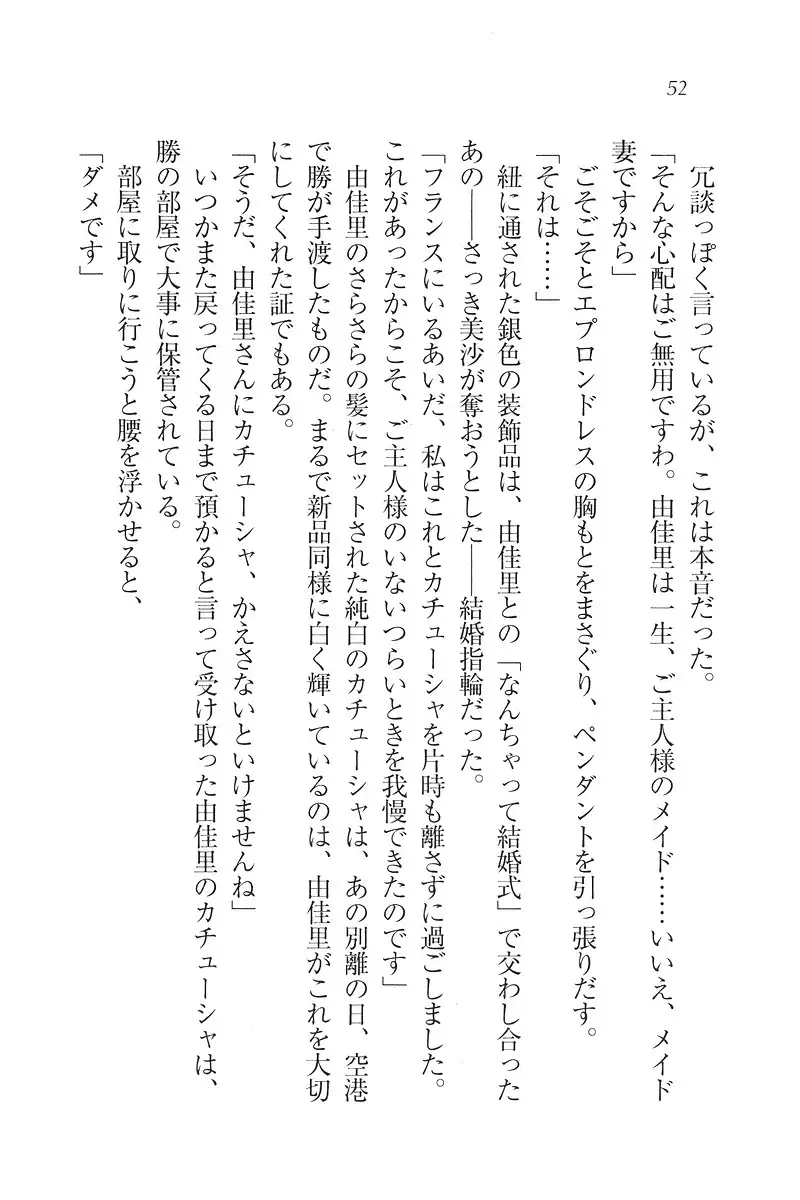 52
冗談っぽく言っているが、これは本音だった。
「そんな心配はご無用ですわ。由佳里は一生、ご主人様のメイド……いいえ、メイド
妻ですから」
ごそごそとエプロンドレスの胸もとをまさぐり、ペンダントを引っ張りだす。
「それは……」
紐に通された銀色の装飾品は、由佳里との「なんちゃって結婚式」で交わし合った
あの――さっき美沙が奪おうとした――結婚指輪だった。
「フランスにいるあいだ、私はこれとカチューシャを片時も離さずに過ごしました。
これがあったからこそ、ご主人様のいないつらいときを我慢できたのです」
由佳里のさらさらの髪にセットされた純白のカチューシャは、あの別離の日、空港
で勝が手渡したものだ。まるで新品同様に白く輝いているのは、由佳里がこれを大切
にしてくれた証でもある。
「そうだ、由佳里さんにカチューシャ、かえさないといけませんね」
いつかまた戻ってくる日まで預かると言って受け取った由佳里のカチューシャは、
勝の部屋で大事に保管されている。
部屋に取りに行こうと腰を浮かせると、
「ダメです」